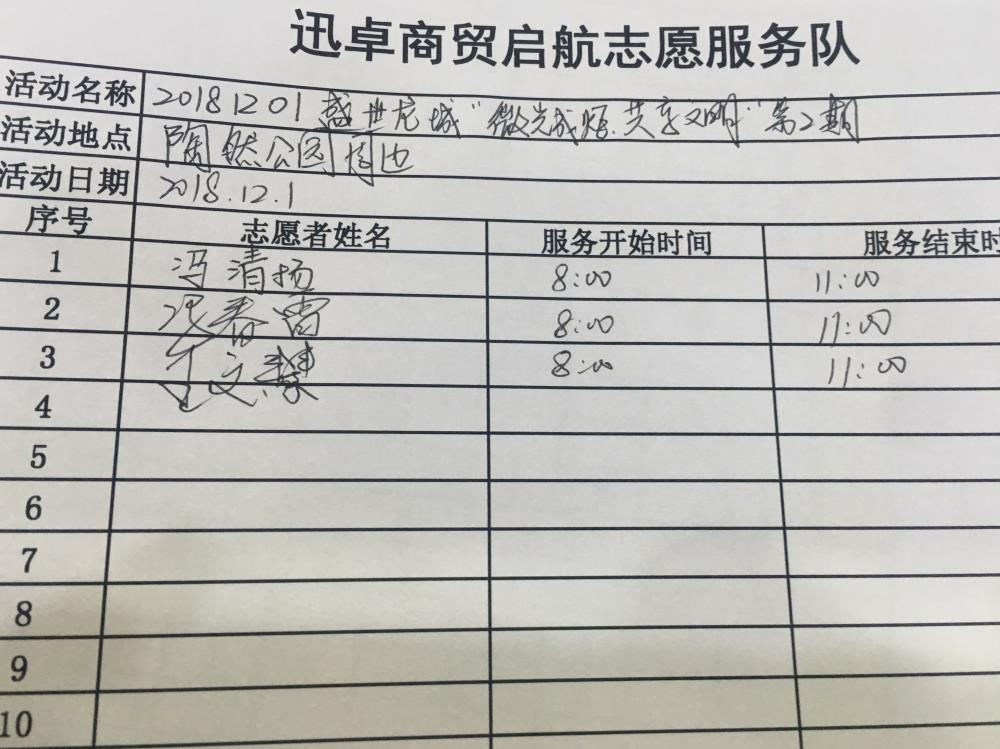 迅卓商贸启航志愿服务队
活动名称 20181201 盛世龙城“微光成炬 共享文明”第2期
活动地点 陶然公园周边
活动日期 2018.12.1
序号 志愿者姓名 服务开始时间 服务结束时
1 冯清扬 8:00 11:00
2 春雷 8:00 11:00
3 文慧 8:00 11:00
4
5
6
7
8
9
10